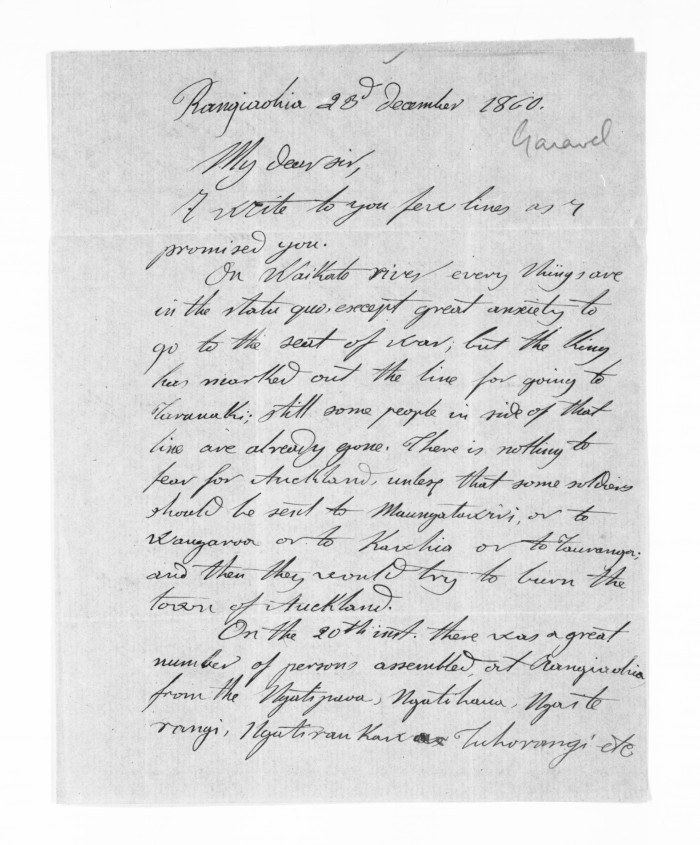 Rangiaohia 28d december 1860.
Garavel
My dear sir,
I write to you few lines as I
promised you.
On Waikato river every things are
in the statu quo, except great anxiety to
go to the seat of war; but the King
has marked out the line for going to
Taranaki; still some people in side of that
line are already gone. There is nothing to
fear for Auckland, unless that some soldiers
should be sent to Maungatawiri, or to
Wangaroa or to Kawhia or to Tauranga;
and then they would try to burn the
town of Auckland.
On the 20th inst. there was a great
number of persons assembled, at Rangiaohia
from the Ngatipaoa, Ngatihaua, Ngaite
rangi, Ngatiraukawa Tuhorangi etc